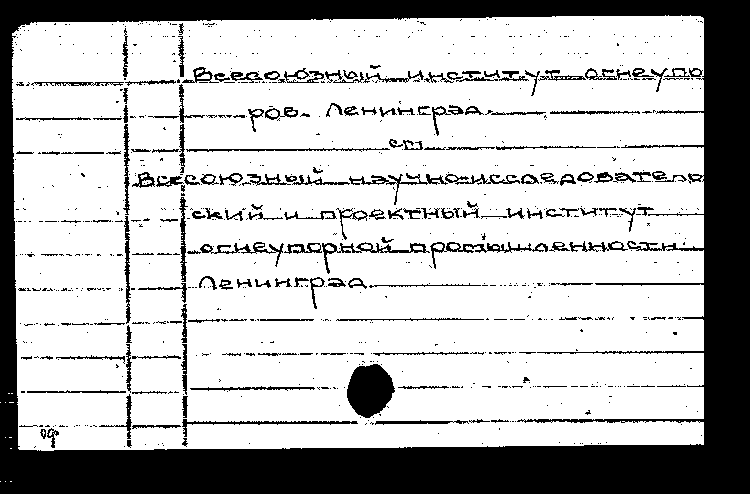 Всесоюзный институт огнеупо
ров. Ленинград.
см.
Всесоюзный научно-исследователь
ский и проектный институт
огнеупорной промышленности.
Ленинград.